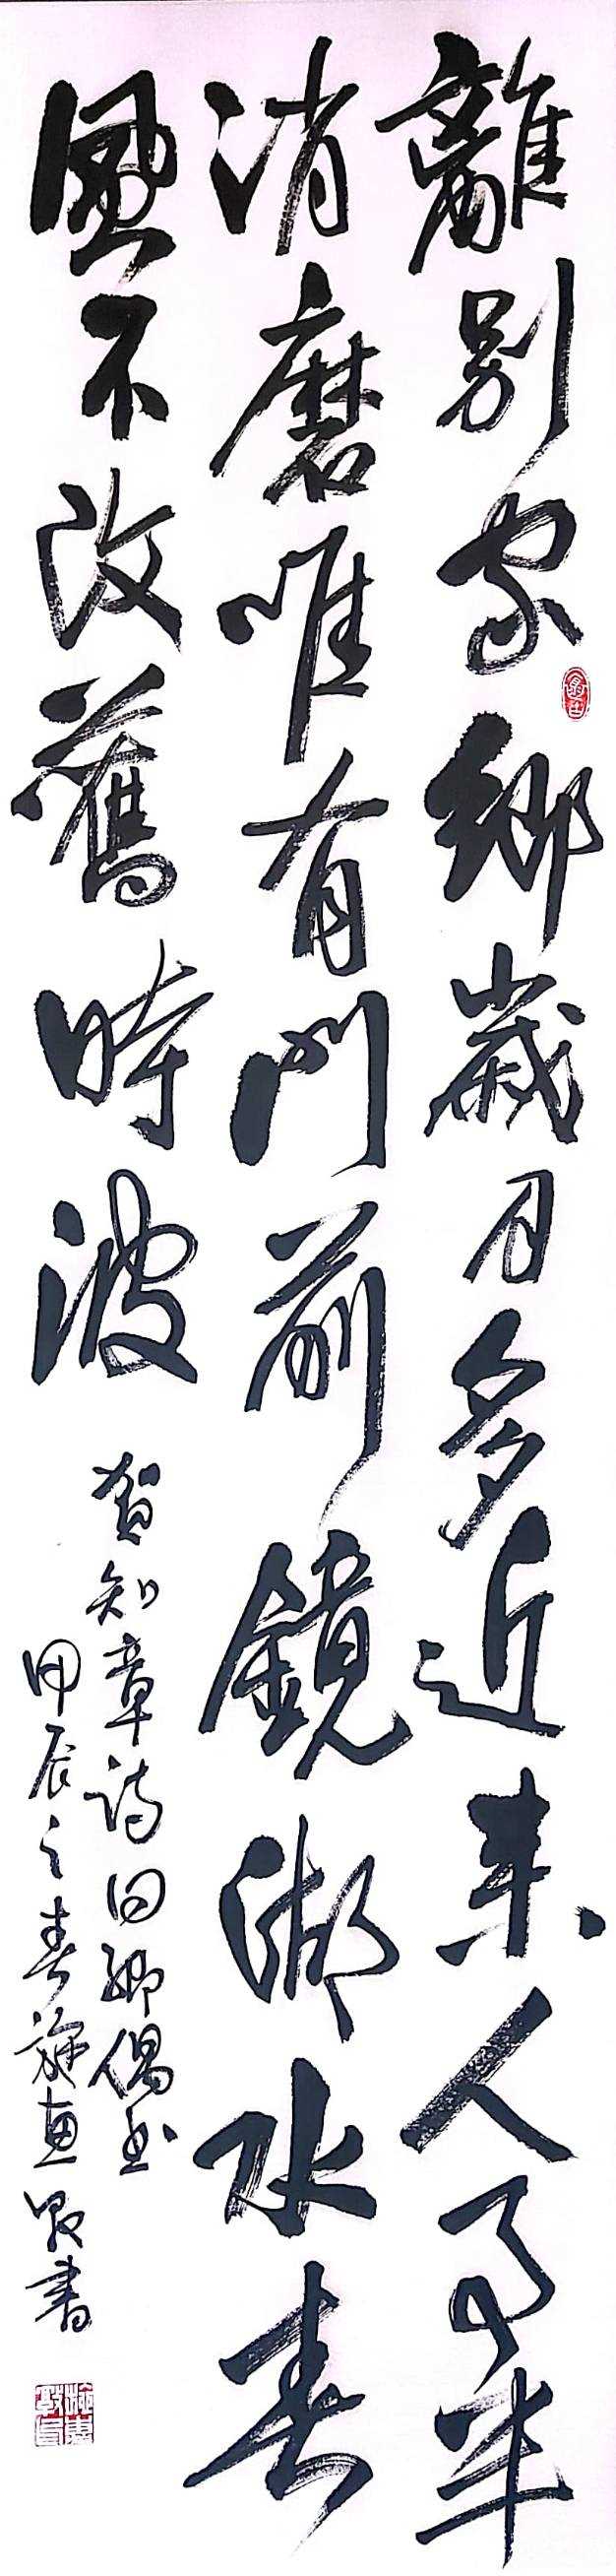 離別家鄉歲月多近来人事半
消磨唯有門前鏡湖水春
風不改舊時波
賀知章詩回鄉偶書
甲辰之春施惠
书